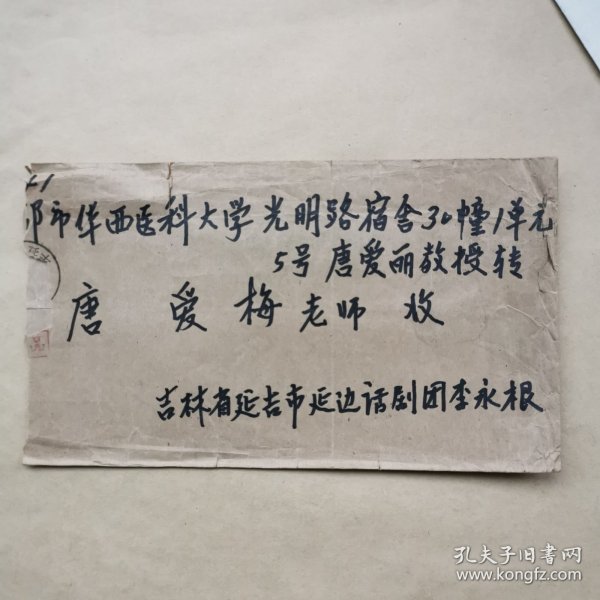 都市华西医科大学光明路宿舍30幢1单元
5号唐爱丽教授转
唐爱梅老师 收
吉林省延吉市延边话剧团李永根
孔夫子旧书网
www.kongfz.com